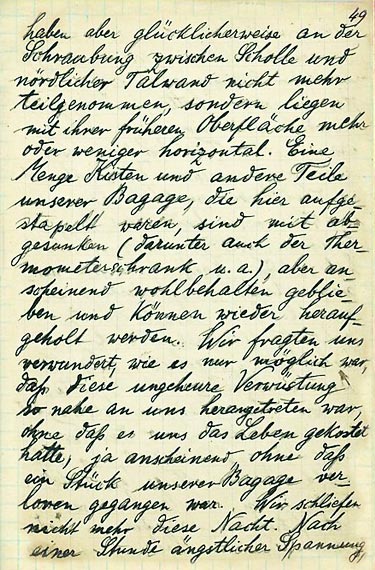 49
haben aber glücklicherweise an der
Schraubung zwischen Scholle und
nördlicher Talwand nicht mehr
teilgenommen, sondern liegen
mit ihrer früheren Oberfläche mehr
oder weniger horizontal. Eine
Menge Kisten und andere Teile
unserer Bagage, die hier aufge-
stapelt waren, sind mit ab-
gesunken (darunter auch der Ther-
mometerschrank u. a.), aber an
scheinend wohlbehalten geblie-
ben und können wieder herauf-
geholt werden. Wir fragten uns
verwundert, wie es nur möglich war
daß diese ungeheure Verwüstung
so nahe an uns herangetreten war,
ohne daß es uns das Leben gekostet
hatte, ja anscheinend ohne daß
ein Stück unserer Bagage ver-
loren gegangen war. Wir schliefen
nicht mehr diese Nacht. Nach
einer Stunde ängstlicher Spannung,